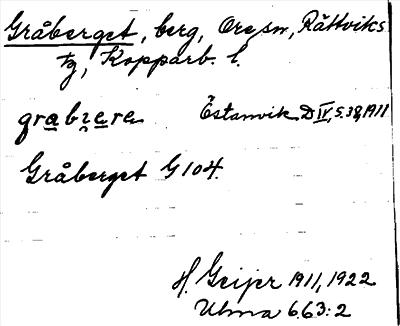 Gråberget, berg, Ore sn, Rättviks
tg, Kopparb. l.
Östanvik D IV, S. 38, 1911
Gråberget G 104.
H. Geijer 1911, 1922
Ulma 663:2